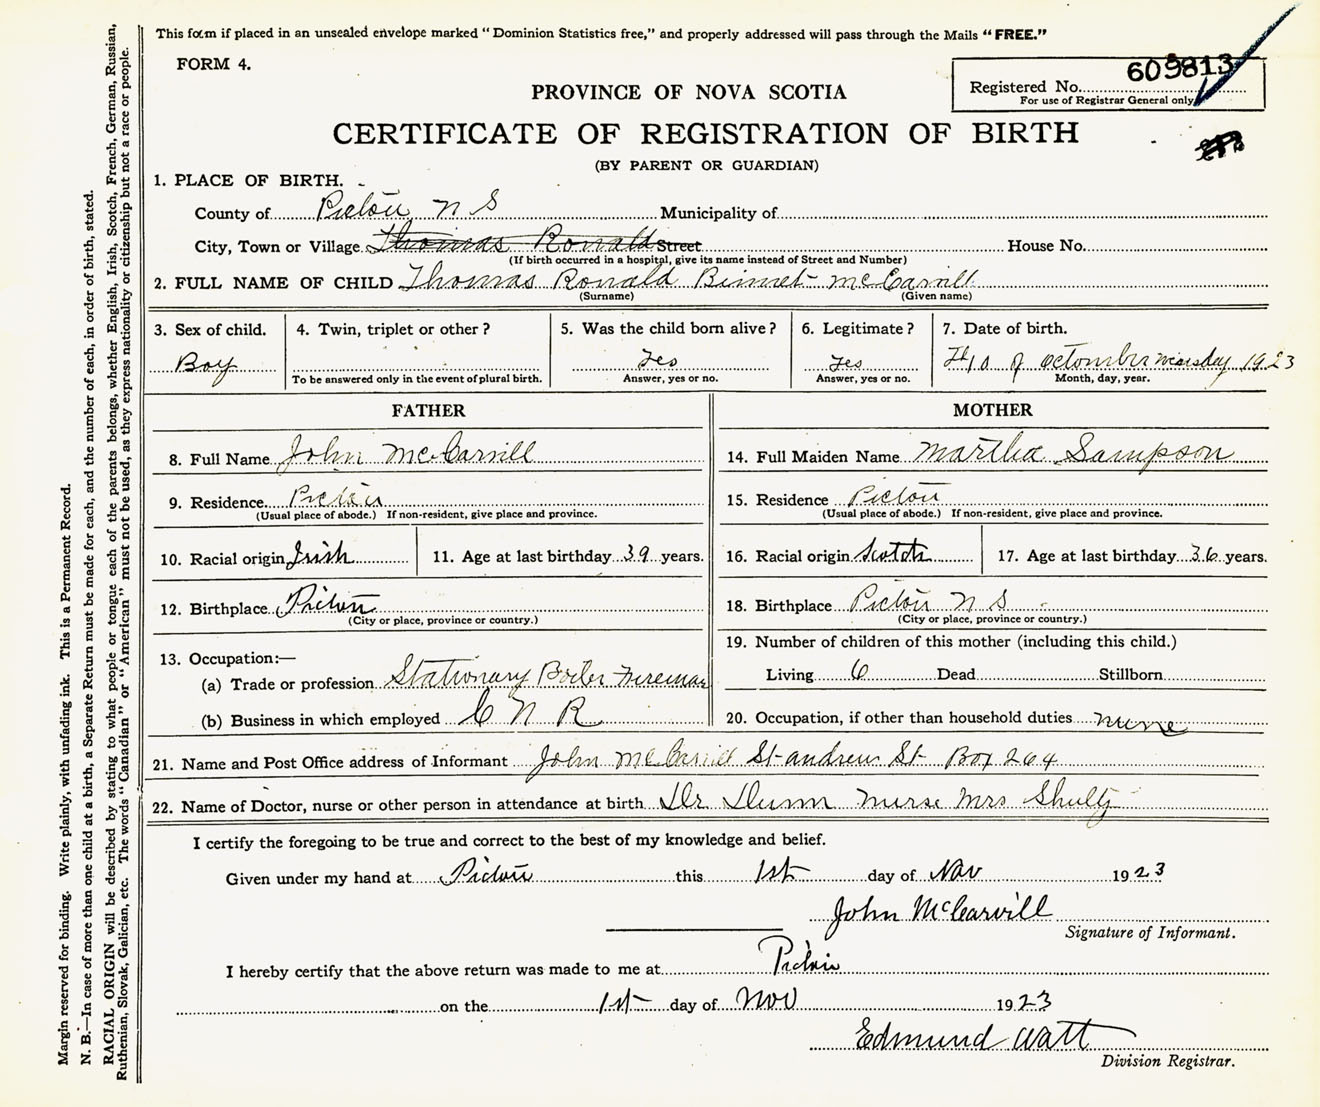 This form if placed in an unsealed envelope marked "Dominion Statistics free," and properly addressed will pass through the Mails "FREE."
FORM 4.
609813
Registered No.
For use of Registrar General only
PROVINCE OF NOVA SCOTIA
CERTIFICATE OF REGISTRATION OF BIRTH
(BY PARENT OR GUARDIAN)
1. PLACE OF BIRTH.
County of Pictou N S Municipality of
City, Town or Village Thomas Ronald Street House No.
(If birth occurred in a hospital, give its name instead of Street and Number)
2. FULL NAME OF CHILD Thomas Ronald McCarvill
(Surname) (Given name)
3. Sex of child. 4. Twin, triplet or other? 5. Was the child born alive? 6. Legitimate? 7. Date of birth.
Boy yes yes 10 of octomber 1923
To be answered only in the event of plural birth. Answer, yes or no. Answer, yes or no. Month, day, year.
FATHER
8. Full Name John McCarvill
9. Residence Pictou
(Usual place of abode.) If non-resident, give place and province.
10. Racial origin Irish 11. Age at last birthday 39 years.
12. Birthplace Pictou
(City or place, province or country.)
13. Occupation:—
(a) Trade or profession Stationary Boiler Fireman
(b) Business in which employed C N R
MOTHER
14. Full Maiden Name Martha Sampson
15. Residence Pictou
(Usual place of abode.) If non-resident, give place and province.
16. Racial origin Scotch 17. Age at last birthday 36 years.
18. Birthplace Pictou N S
(City or place, province or country.)
19. Number of children of this mother (including this child.)
Living 6 Dead Stillborn
20. Occupation, if other than household duties nurse
21. Name and Post Office address of Informant John McCarvill St andrew St Box 264
22. Name of Doctor, nurse or other person in attendance at birth Dr Dunn nurse Mrs Shultz
I certify the foregoing to be true and correct to the best of my knowledge and belief.
Given under my hand at Pictou this 1st day of Nov 1923
John McCarvill
Signature of Informant.
I hereby certify that the above return was made to me at Pictou
on the 1st day of Nov 1923
Edmund Watt
Division Registrar.
Margin reserved for binding. Write plainly, with unfading ink. This is a Permanent Record.
N. B.—In case of more than one child at a birth, a Separate Return must be made for each, and the number of each, in order of birth, stated.
RACIAL ORIGIN will be described by stating to what people or tongue each of the parents belongs, whether English, Irish, Scotch, French, German, Russian,
Ruthenian, Slovak, Galician, etc. The words "Canadian" or "American" must not be used, as they express nationality or citizenship but not a race or people.